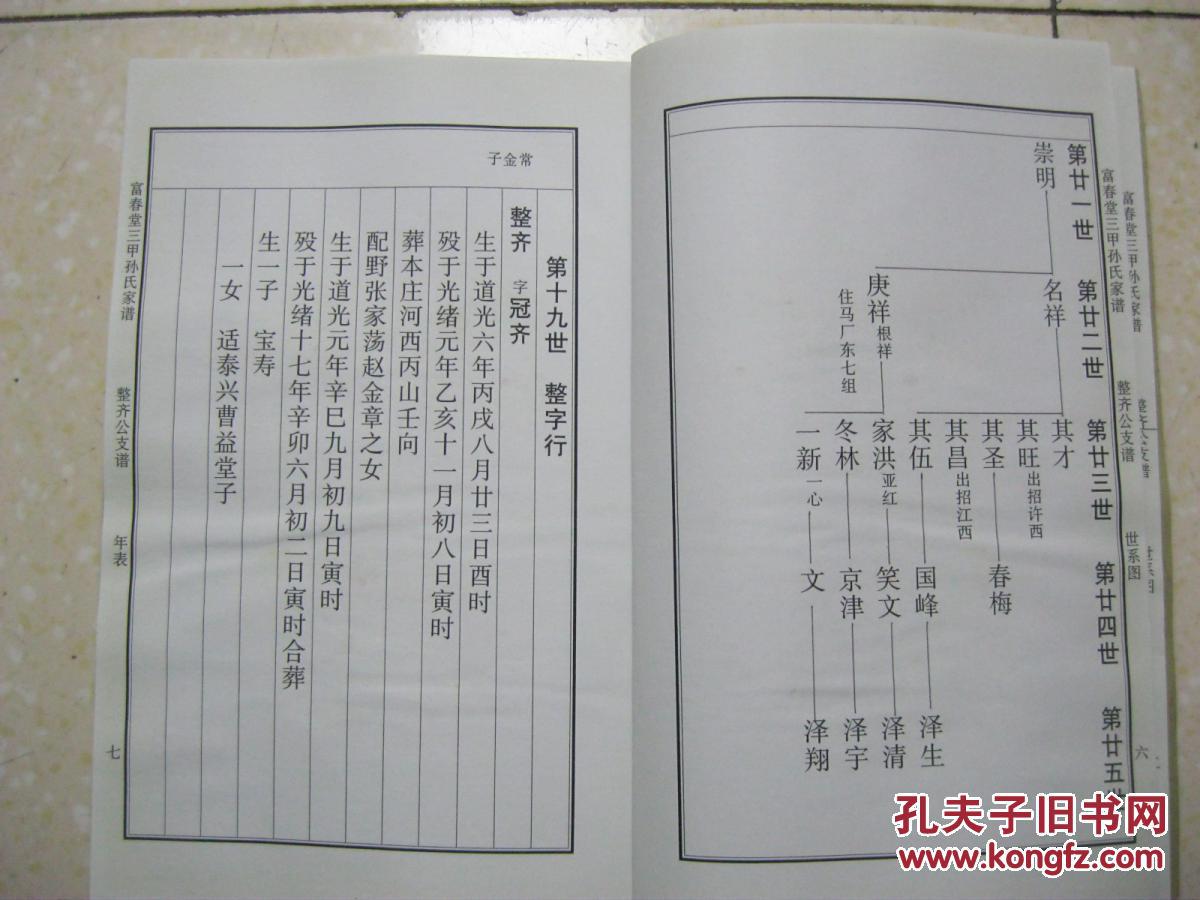 富春堂三甲孙氏家谱
整齐公支谱
世系图
富春堂三甲孙氏家谱
整齐公支谱
世系图
六
第廿一世 第廿二世 第廿三世 第廿四世 第廿五世
崇明
名祥
其才
其旺 出招许西
其圣 春梅
其昌 出招江西
其伍 国峰 泽生
庚祥 根祥
住马厂东七组
家洪 亚红 笑文 泽清
冬林 京津 泽宇
一新 一心 文 泽翔
常金子
第十九世 整字行
整齐 字冠齐
生于道光六年丙戌八月廿三日酉时
殁于光绪元年乙亥十一月初八日寅时
葬本庄河西丙山壬向
配野张家荡赵金章之女
生于道光元年辛巳九月初九日寅时
殁于光绪十七年辛卯六月初二日寅时合葬
生一子 宝寿
一女 适泰兴曹益堂子
富春堂三甲孙氏家谱
整齐公支谱
年表
七
孔夫子旧书网
www.kongfz.com